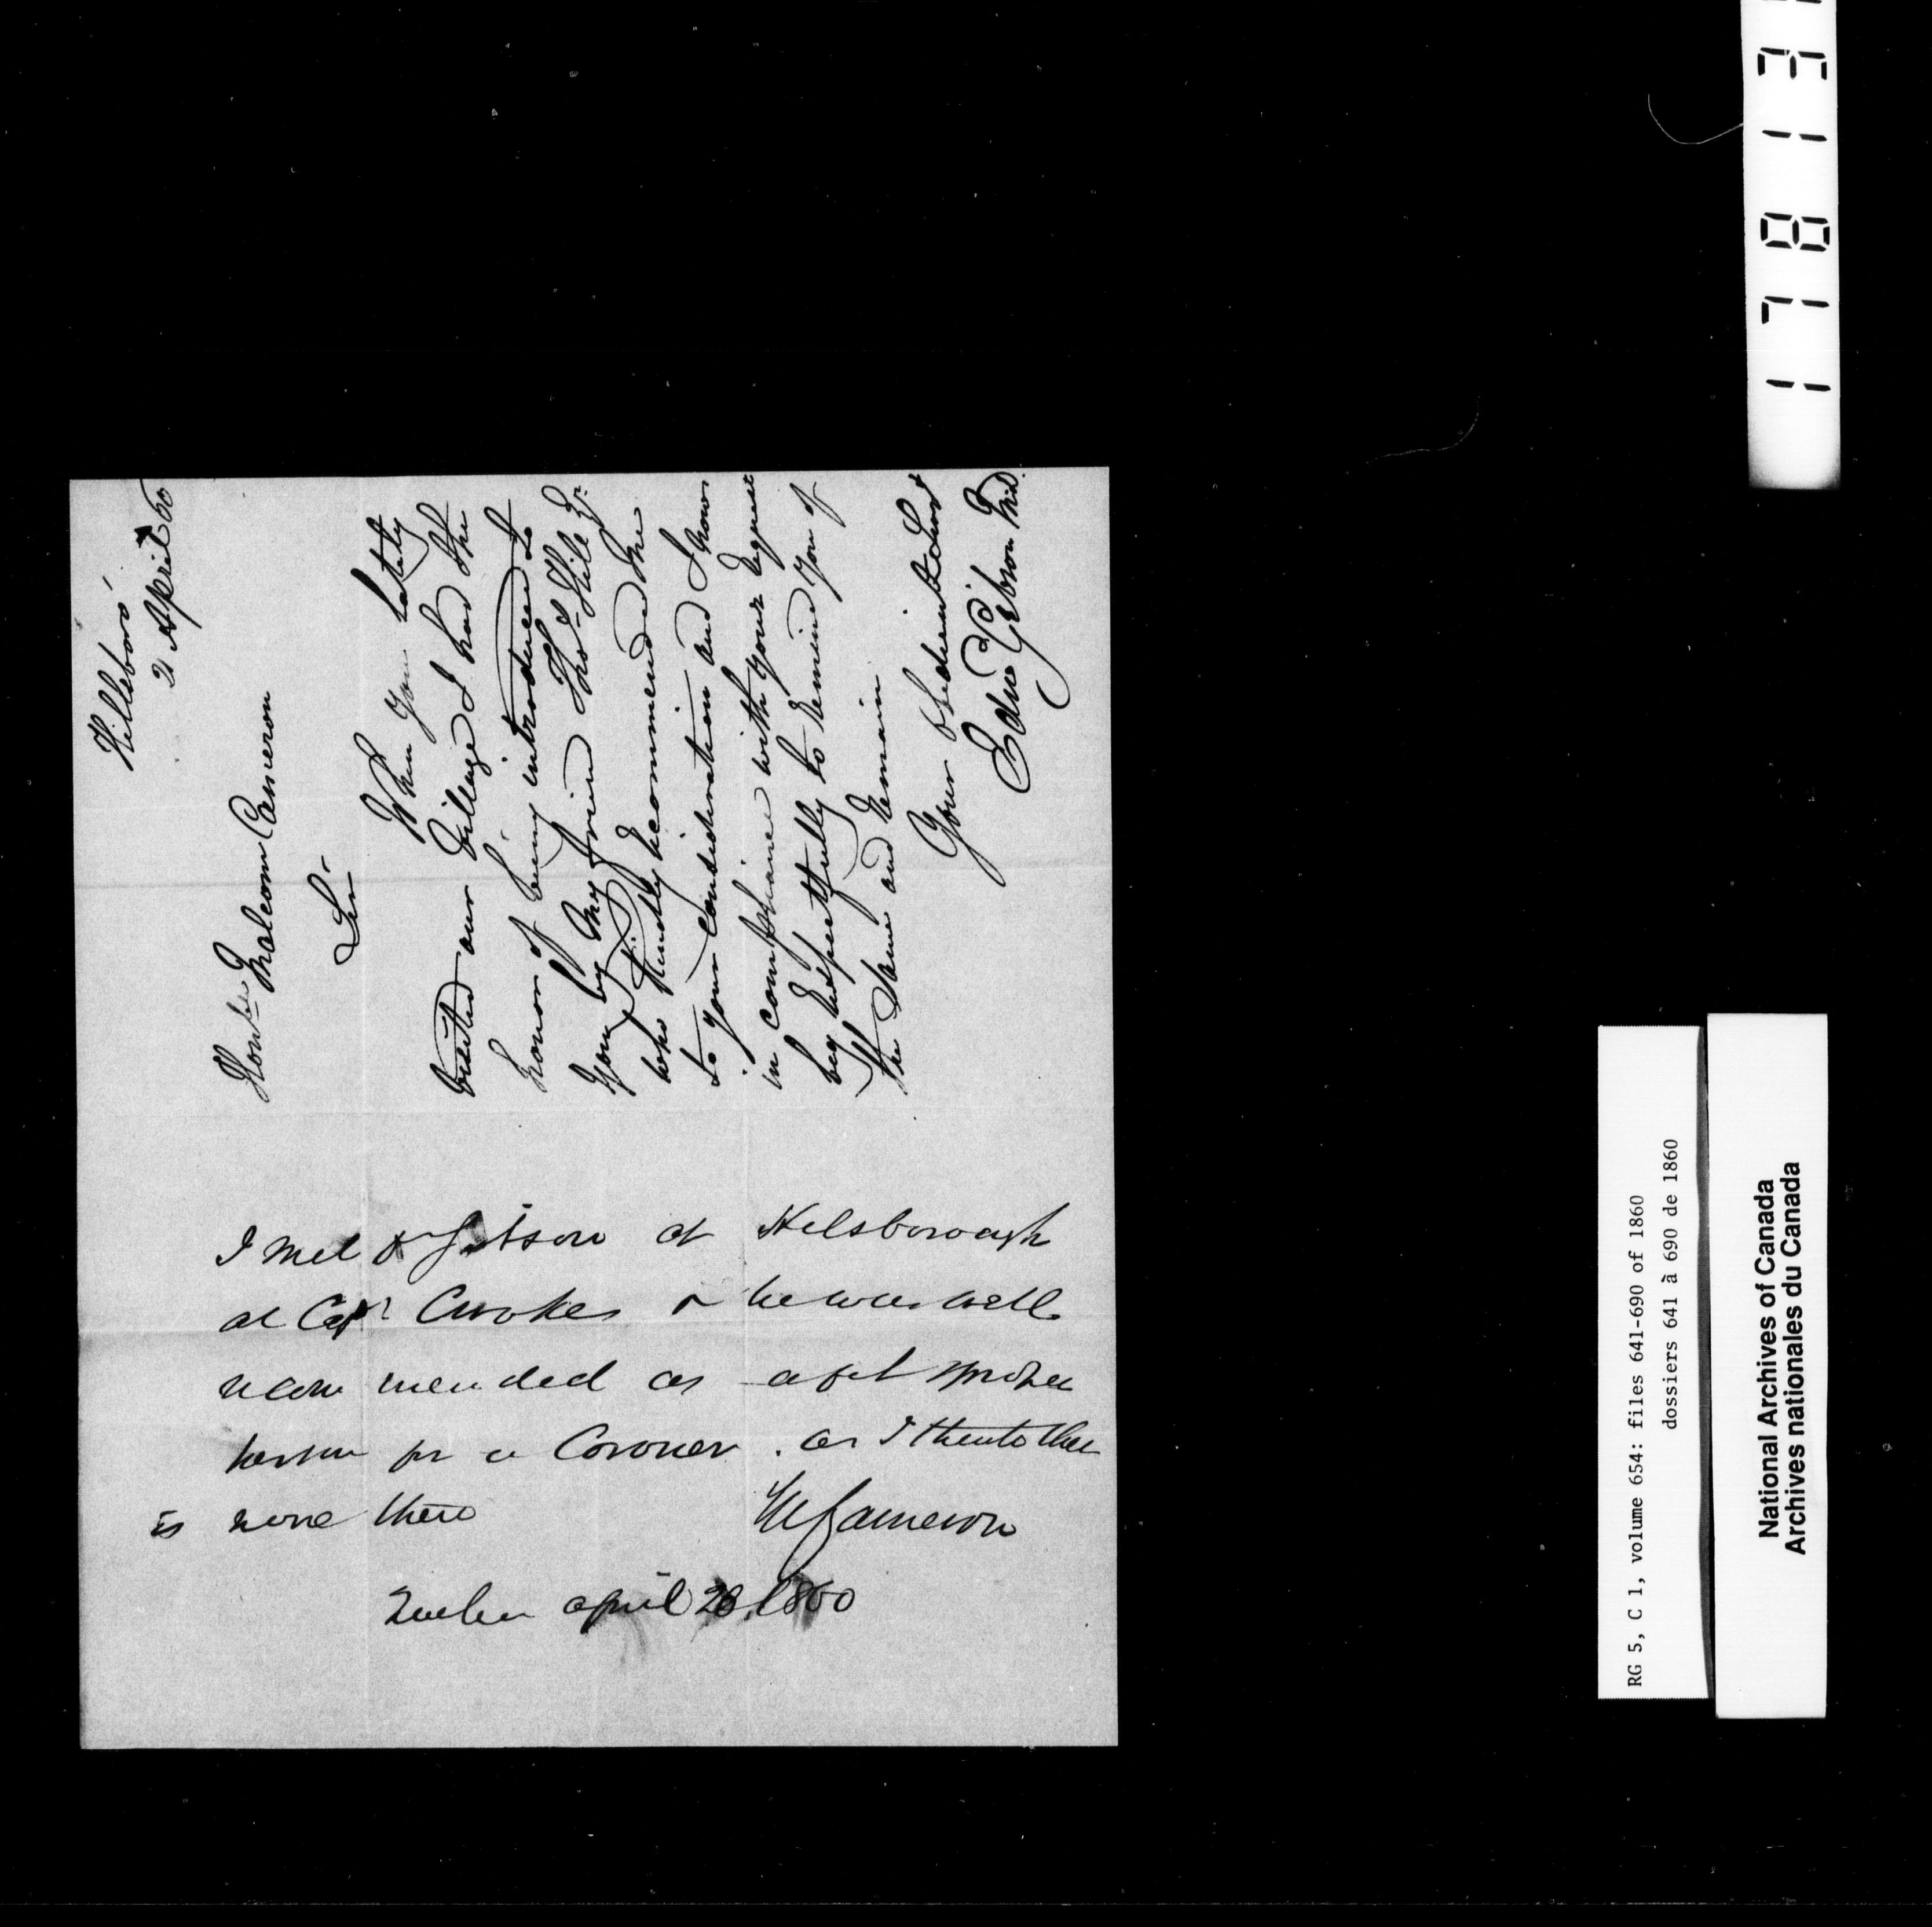 Hillsboro'
2 April 60
Honble Malcom Cameron
Sir
When you lately
visited our Village I had the
honor of being introduced to
you by my friend Thos Hill Jr.
who kindly recommended me
to your consideration and I now
in compliance with your request
beg respectfully to remind you of
the same and remain
Your obedient Servt
Edw Gibson Md.
I met Dr Gibson at Hilsborough
at Capt Crookes & he was well
recommended as a fit proper
person for a Coroner. as I think there
is none there
M Cameron
Quebec april 28, 1860
1 7 8 1 3
RG 5, C 1, volume 654: files 641-690 of 1860
dossiers 641 à 690 de 1860
National Archives of Canada
Archives nationales du Canada